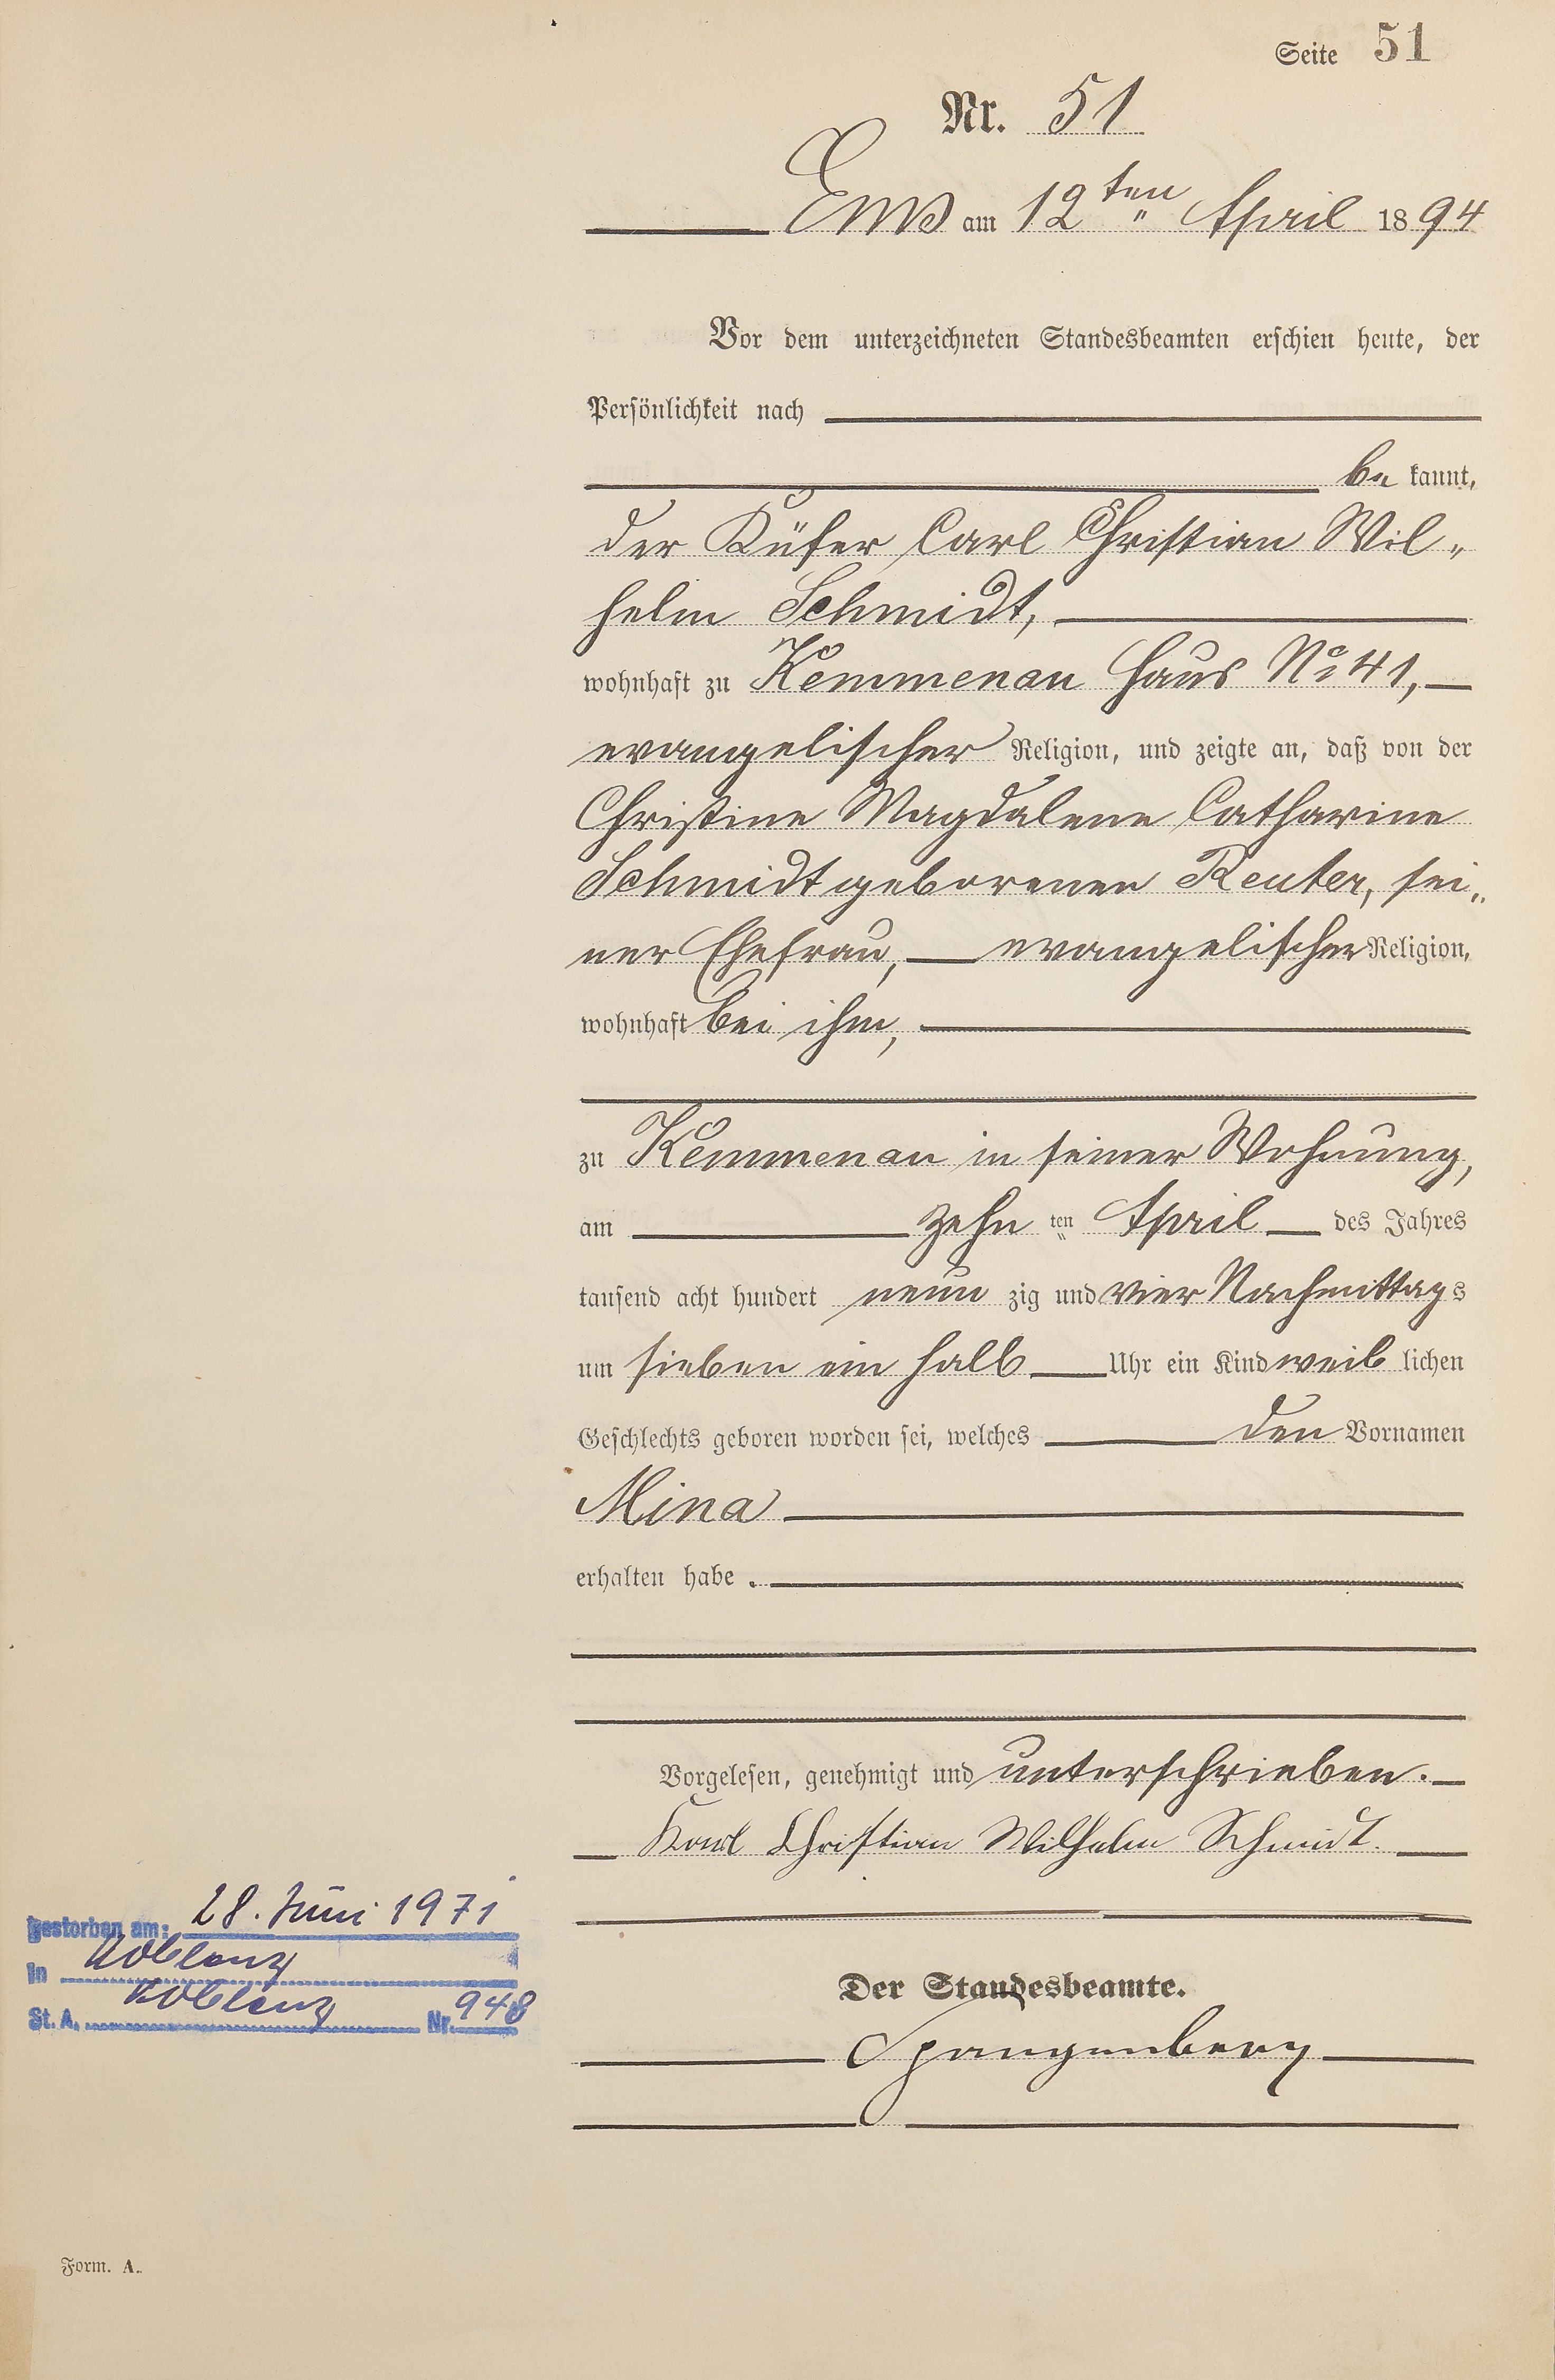 Seite 51
Nr. 51
Ems am 12ten April 1894
Vor dem unterzeichneten Standesbeamten erschien heute, der
Persönlichkeit nach
be kannt,
der Küfer Carl Christian Wil„
helm Schmidt,
wohnhaft zu Kemmenau Haus No 41,
evangelischer Religion, und zeigte an, daß von der
Christine Magdalene Catharine
Schmidt geborenen Reuter, sei„
ner Ehefrau, evangelischer Religion,
wohnhaft bei ihm,
zu Kemmenau in seiner Wohnung,
am zehn ten April des Jahres
tausend acht hundert neun zig und vier Nachmittags
um sieben ein halb Uhr ein Kind weib lichen
Geschlechts geboren worden sei, welches den Vornamen
Mina
erhalten habe.
Vorgelesen, genehmigt und unterschrieben.
Karl Christian Wilhelm Schmidt.
Der Standesbeamte.
Spangenberg
gestorben am: 28. Juni 1971
in Koblenz
St. A. Koblenz Nr. 948
Form. A.